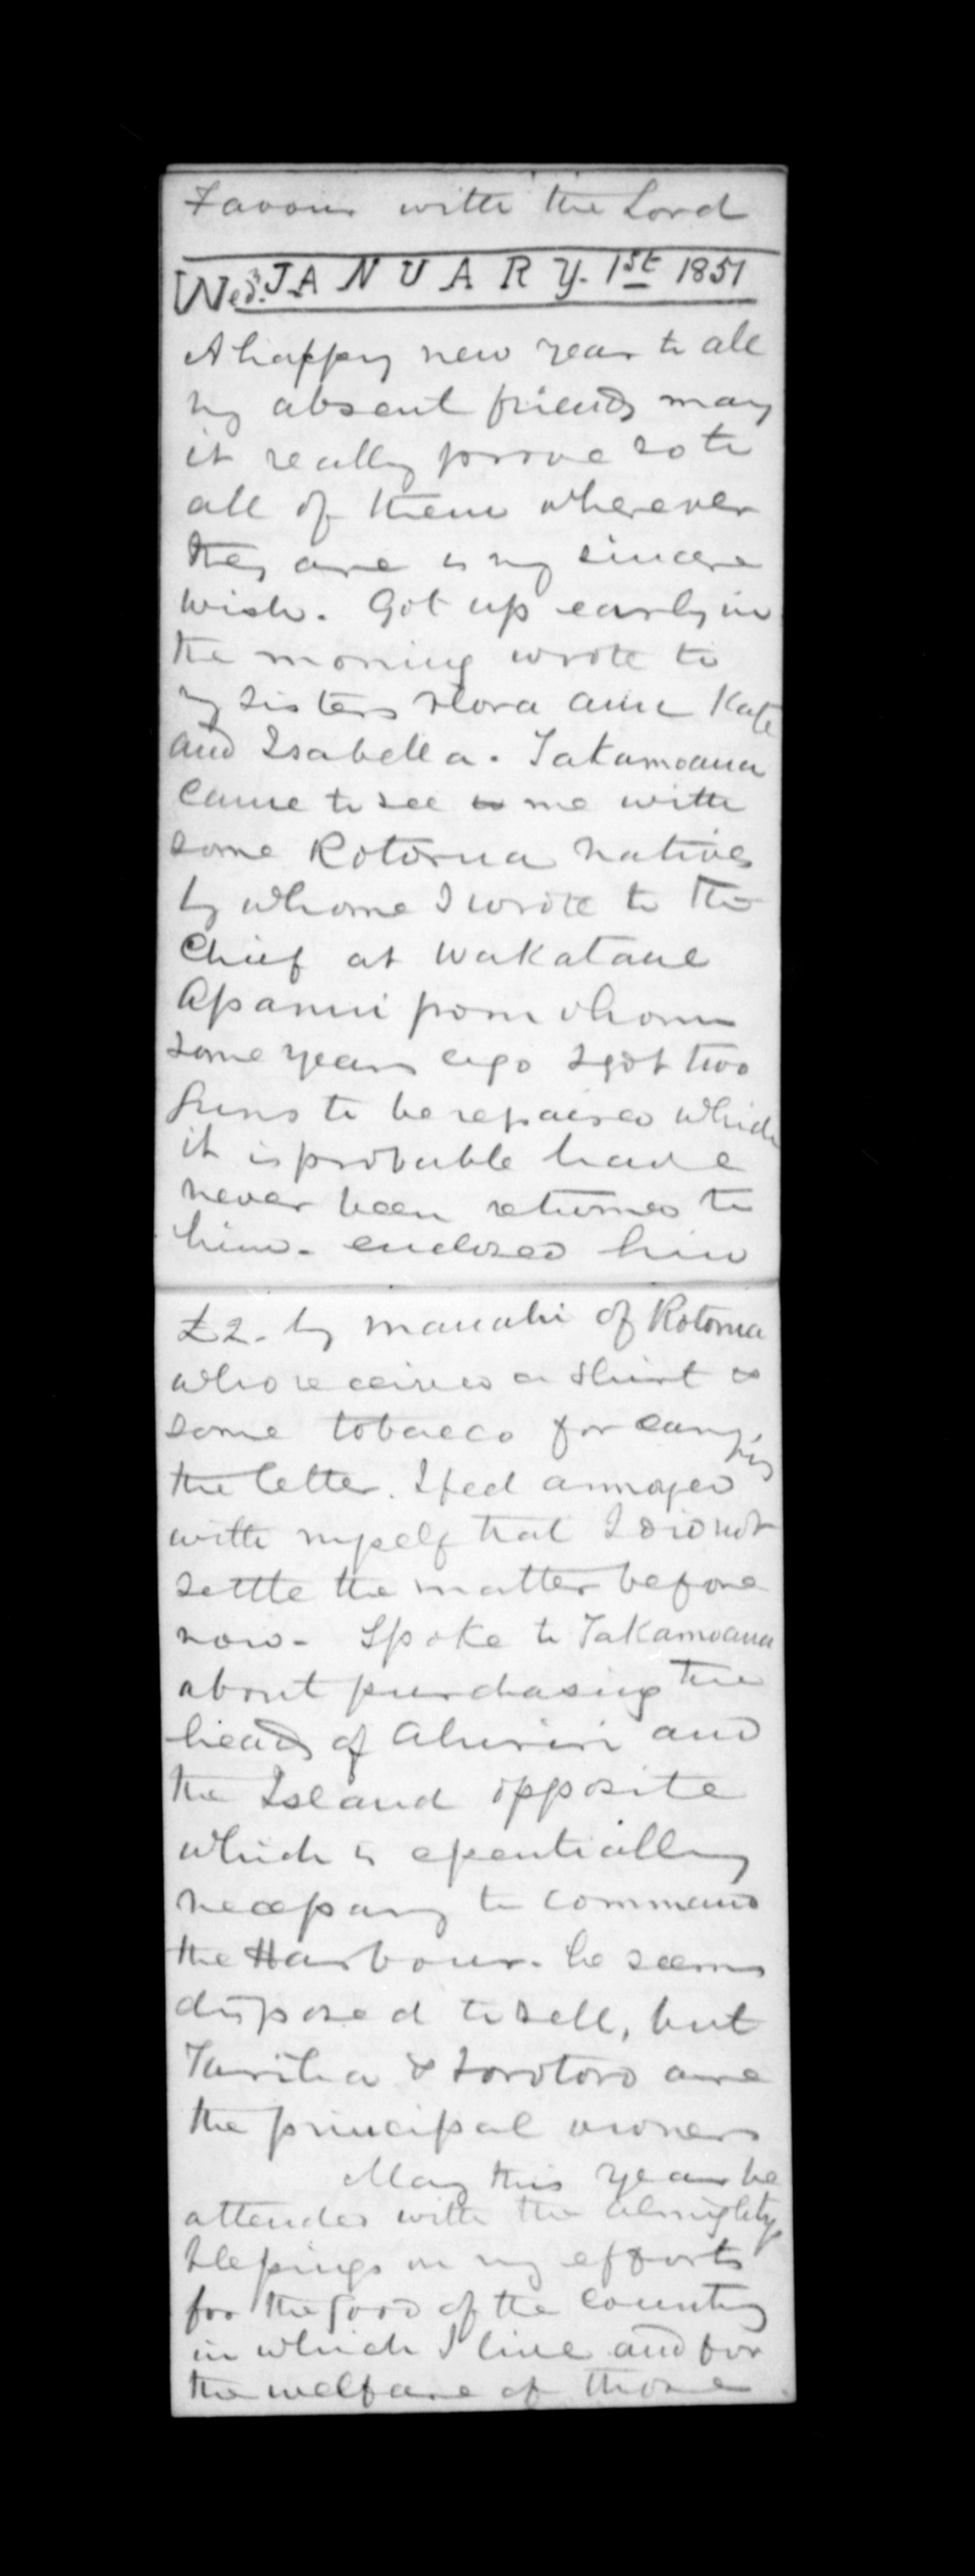 Favour with the Lord
Wed. JANUARY. 1st 1851
A happy new year to all
my absent friends may
it really prove so to
all of them wherever
they are is my sincere
wish. Got up early in
the morning wrote to
my sisters Flora Ann Kate
and Isabella. Takamoana
came to see me with
some Rotorua natives
by whome I wrote to the
Chief at Wakatane
Apanui from whom
some years ago I got two
Guns to be repaired which
it is probable have
never been returned to
him. enclosed him
£2. by Manahi of Rotorua
who received a Shirt &
some tobacco for carrying
the letter. I feel annoyed
with myself that I did not
settle the matter before
now. Spoke to Takamoana
about purchasing the
heads of Ahuriri and
the Island opposite
which is essentially
necessary to command
the Harbour. he seems
disposed to sell, but
Tariha & Torotoro are
the principal owners
May this year be
attended with the almightys
blessings on my efforts
for the good of the country
in which I live and for
the welfare of those